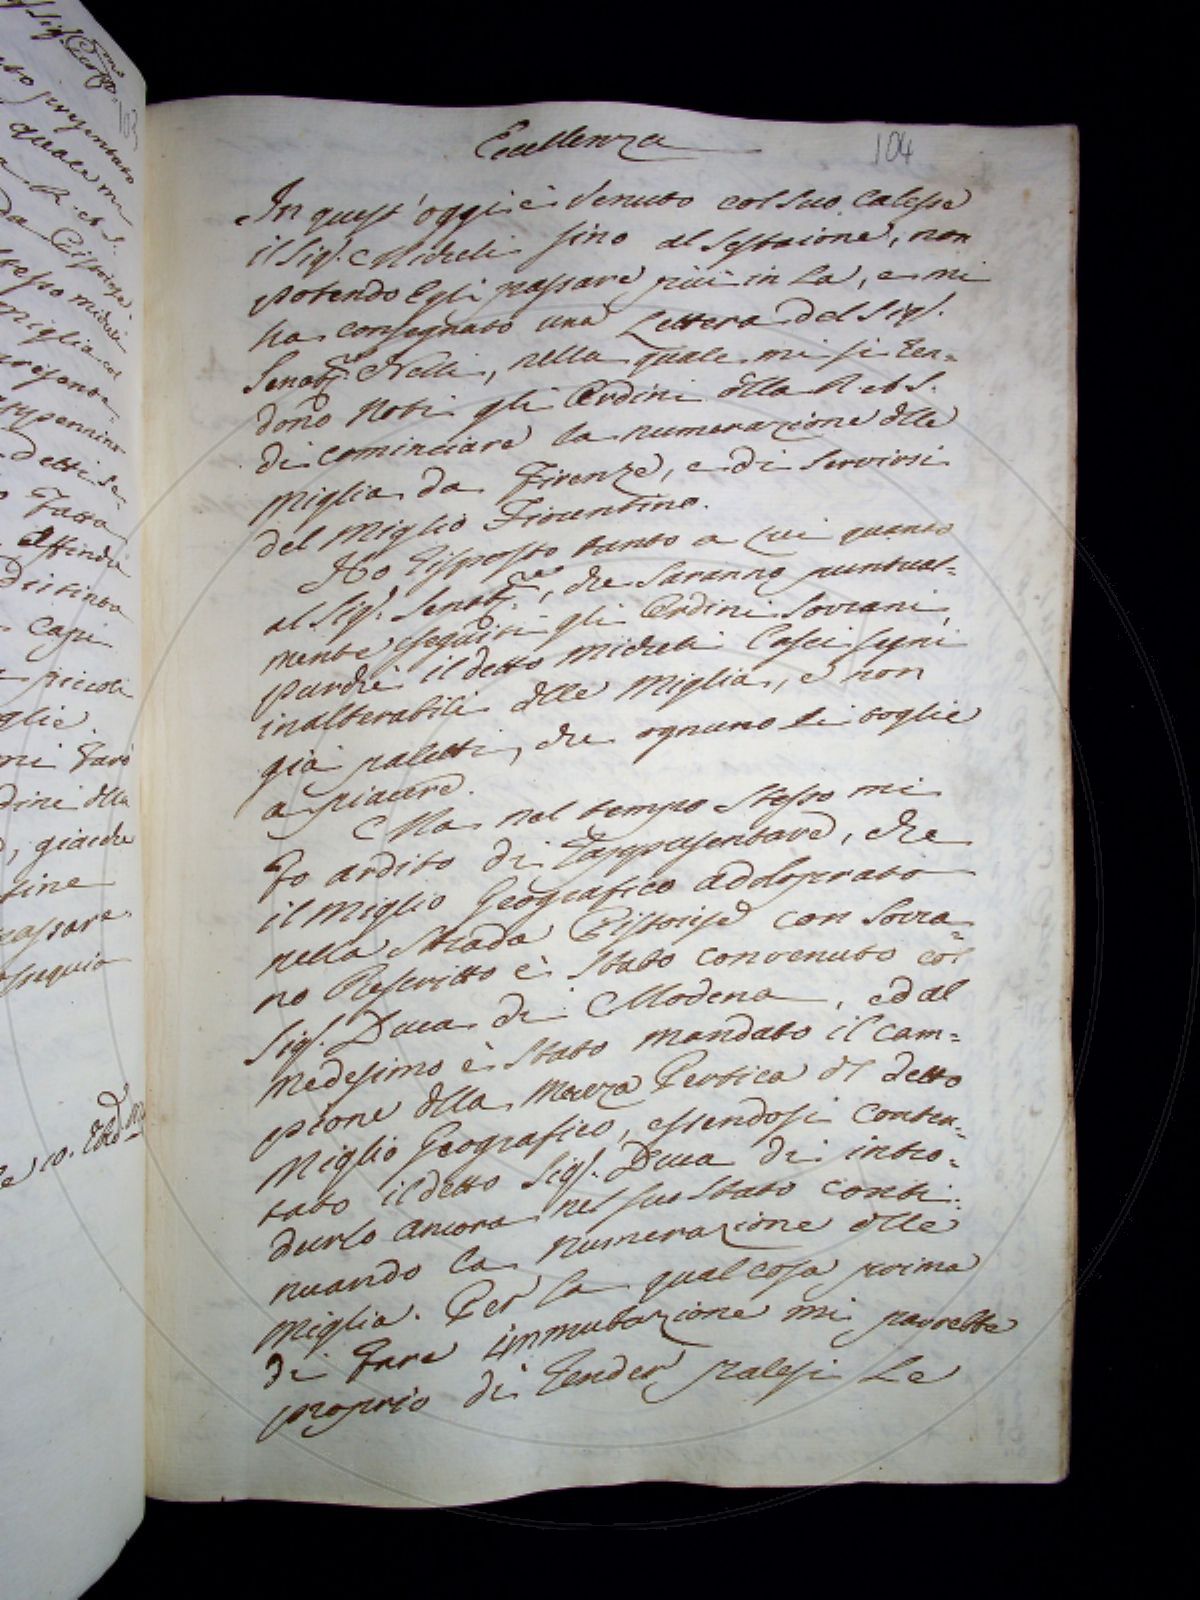 Eccellenza
104
In quest'oggi è venuto col suo calesse
il Sig.r Micheli sino al Sestaione, non
potendo Egli passare più in là, e mi
ha consegnato una Lettera del Sig.r
Senat.re Nelli, nella quale mi si ren-
dono noti gli Ordini dlla R. A. S.
di cominciare la numerazione dlle
miglia da Firenze, e di servirsi
del Miglio Fiorentino.
Ho risposto tanto a lui quanto
al Sig.r Senat.re, che saranno puntual-
mente eseguiti gli Ordini Sovrani,
purchè il detto Micheli lasci segni
inalterabili dlle miglia, e non
già paletti, che ognuno li toglie
a piacere.
Ma nel tempo stesso mi
fo ardito di rappresentare, che
il Miglio Geografico addoprato
nella Strada Pistoiese con Sovra-
no Rescritto è stato convenuto col
Sig.r Duca di Modena, ed al
medesimo è stato mandato il cam-
pione dlla mezza Pertica dl detto
Miglio Geografico, essendosi conten-
tato il detto Sig.r Duca di intro-
durlo ancora nel suo stato conti-
nuando la numerazione dlle
miglia. Per la qual cosa prima
di fare immutazione mi parrebbe
proprio di render palesi le
103
presentato
quale mi
R. A. S.
da
stesso Micheli
miglia col
detti se-
fatta
distinta
Capi
piccoli
mi farò
dini dlla
giacche
fine
passare
ossequio